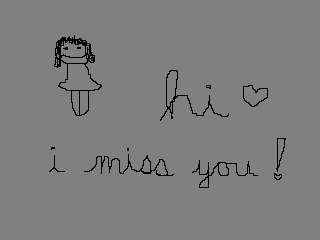 hi
i miss you!